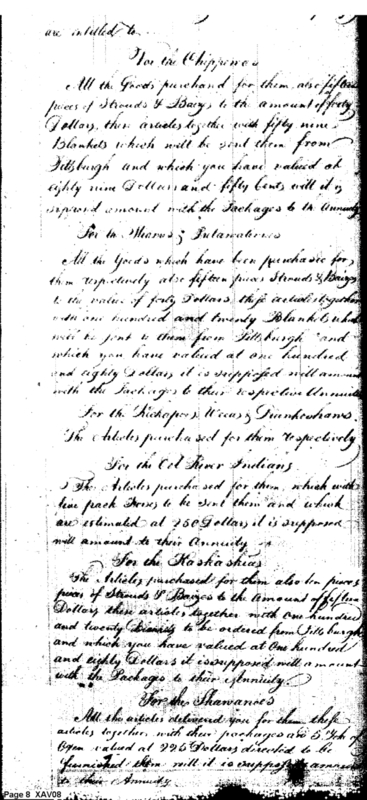 are entitled to
For the Chippewas
All the Goods purchased for them, also fifteen
pieces of Strouds & Baizes to the amount of forty
Dollars, these articles together with fifty nine
Blankets which will be sent them from
Pittsburgh and which you have valued at
eighty nine Dollars and fifty Cents will it is
supposed amount with the Packages to the Annuity
For the Miamis & Putawatimies
All the Goods which have been purchased for
them respectively also fifteen pieces Strouds & Baizes
to the value of forty Dollars, these articles together
with one hundred and twenty Blankets which
will be sent to them from Pittsburgh and
which you have valued at one hundred
and eighty Dollars it is supposed will amount
with the Packages to their respective Annuities
For the Kickapoos, Weeas & Piankeshaws
The Articles purchased for them respectively
For the Eel River Indians
The Articles purchased for them, which with
pack Horses to be sent them and which
are estimated at 250 Dollars it is supposed
will amount to their Annuity
For the Kaskaskias
The Articles purchased for them also ten pieces
pieces of Strouds & Baizes to the Amount of fifteen
Dollars these articles together with One hundred
and twenty to be ordered from Pittsburgh
and which you have valued at One hundred
and eighty Dollars it is supposed will amount
with the Packages to their Annuity.
For the Shawanoes
All the articles delivered you for them these
articles together with their packages and 5 Yoke of
Oxen valued at 225 Dollars directed to be
furnished them will it is supposed amount
to their Annuity
Page 8 XAV08